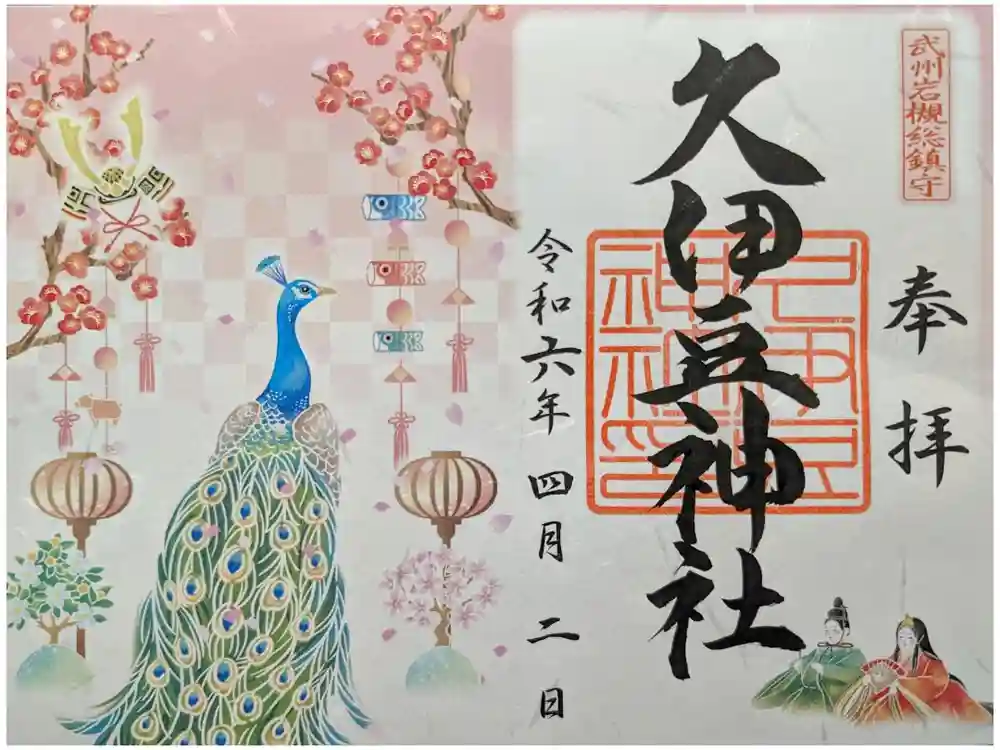 武州岩槻総鎮守
奉拝
久伊豆神社
令和六年四月二日